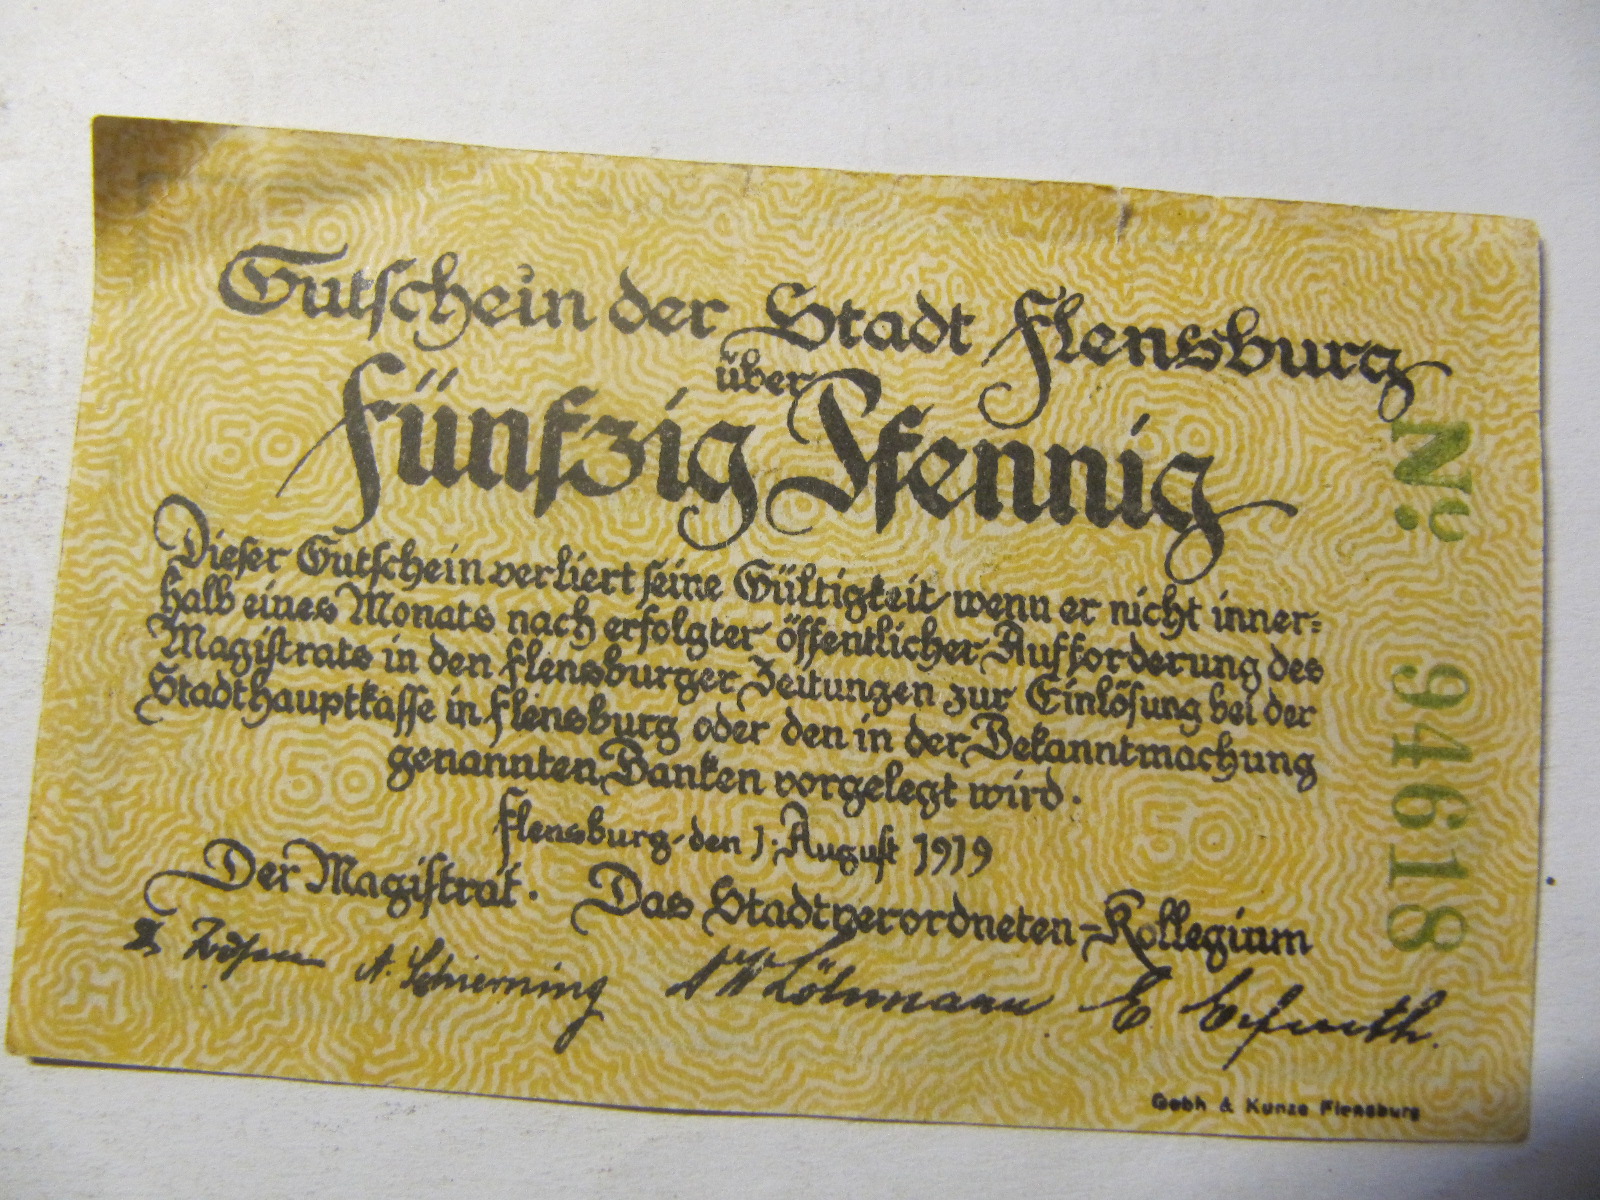 Gutschein der Stadt Flensburg
über
Fünfzig Pfennig
Dieser Gutschein verliert seine Gültigkeit wenn er nicht inner=
halb eines Monats nach erfolgter öffentlicher Aufforderung des
Magistrats in den Flensburger Zeitungen zur Einlösung bei der
Stadthauptkasse in Flensburg oder den in der Bekanntmachung
genannten Banken vorgelegt wird.
Flensburg, den 1. August 1919
Der Magistrat. Das Stadtverordneten-Kollegium
A. Schierning Löhmann E
Gebh & Kunze Flensburg
No. 94618
50
50
50
50
50